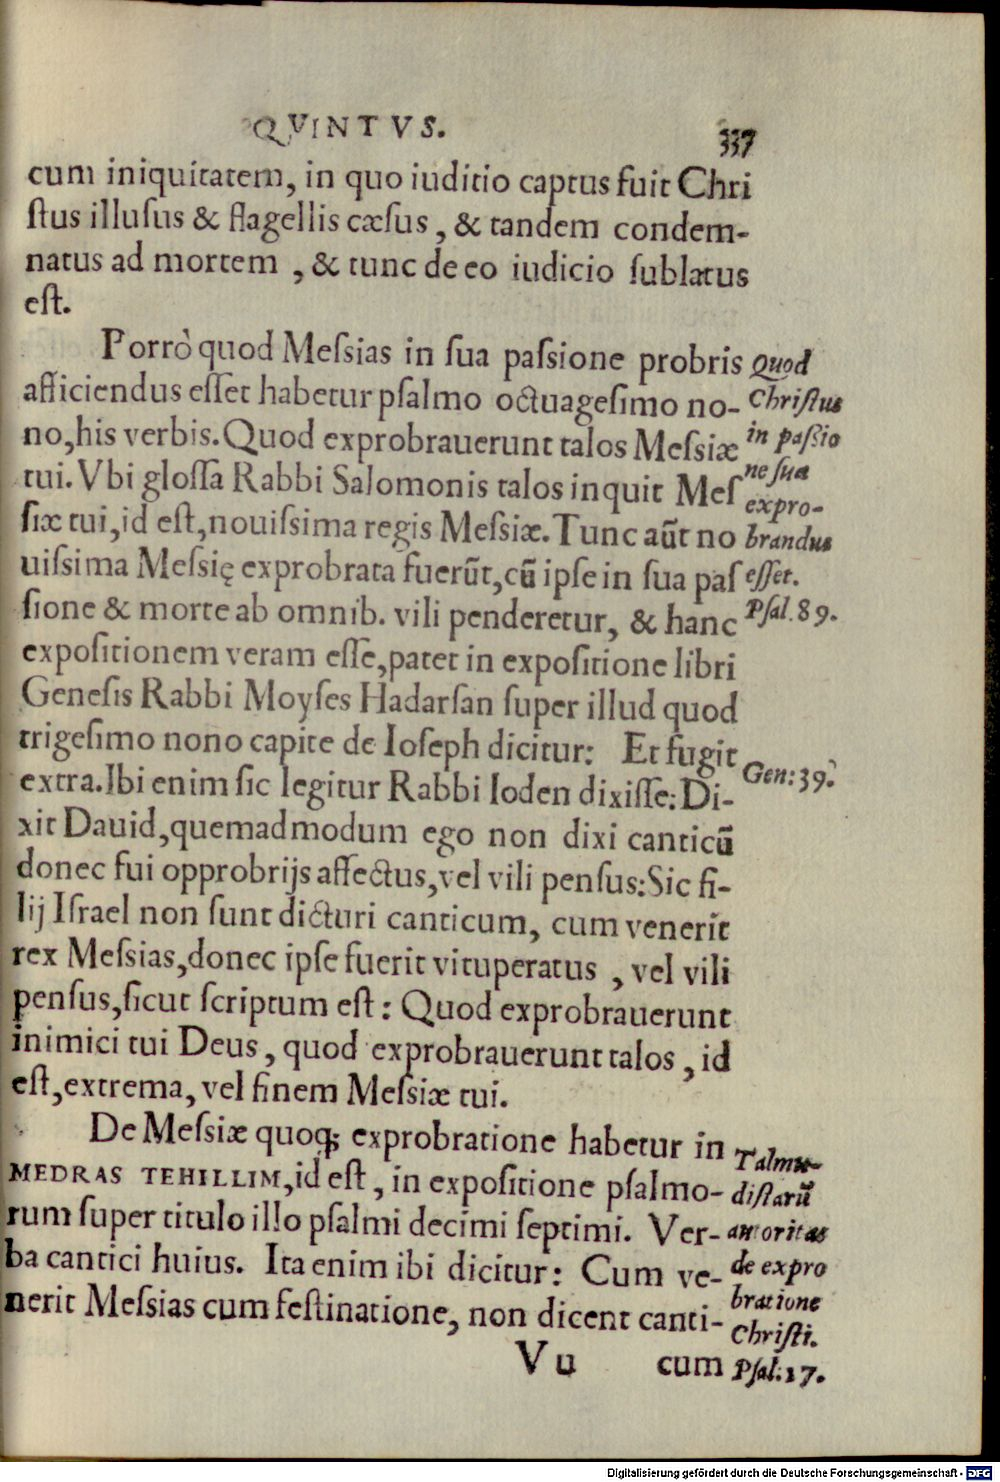 QVINTVS. 337
cum iniquitatem, in quo iuditio captus fuit Chri
ſtus illuſus & flagellis cæſus, & tandem condem-
natus ad mortem, & tunc de eo iudicio ſublatus
eſt.
Porrò quod Meſsias in ſua paſsione probris
afficiendus eſſet habetur pſalmo octuageſimo no-
no, his verbis. Quod exprobrauerunt talos Meſsiæ
tui. Vbi gloſſa Rabbi Salomonis talos inquit Meſ
ſiæ tui, id eſt, nouiſsima regis Meſsiæ. Tunc aūt no
uiſsima Meſsię exprobrata fuerūt, cū ipſe in ſua paſ
ſione & morte ab omnib. vili penderetur, & hanc
expoſitionem veram eſſe, patet in expoſitione libri
Geneſis Rabbi Moyſes Hadarſan ſuper illud quod
trigeſimo nono capite de Ioſeph dicitur: Et fugit
extra. Ibi enim ſic legitur Rabbi Ioden dixiſſe: Di-
xit Dauid, quemadmodum ego non dixi canticū
donec fui opprobrijs affectus, vel vili penſus: Sic fi-
lij Iſrael non ſunt dicturi canticum, cum venerit
rex Meſsias, donec ipſe fuerit vituperatus, vel vili
penſus, ſicut ſcriptum eſt: Quod exprobrauerunt
inimici tui Deus, quod exprobrauerunt talos, id
eſt, extrema, vel finem Meſsiæ tui.
De Meſsiæ quoq; exprobratione habetur in
MEDRAS TEHILLIM, id eſt, in expoſitione pſalmo-
rum ſuper titulo illo pſalmi decimi ſeptimi. Ver-
ba cantici huius. Ita enim ibi dicitur: Cum ve-
nerit Meſsias cum feſtinatione, non dicent canti-
Vu cum
Quod
Chriſtus
in paſsio
ne ſua
expro-
brandus
eſſet.
Pſal. 89.
Gen: 39.
Talmu-
diſtarū
autoritas
de expro
bratione
Chriſti.
Pſal: 17.
Digitalisierung gefördert durch die Deutsche Forschungsgemeinschaft - DFG